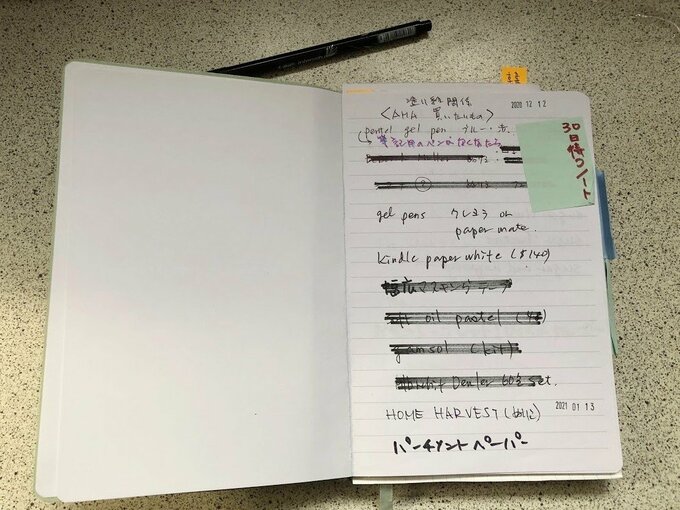 塗り絵関係
2020 12 12
<AHA 買いたいもの>
pentel gel pen ブルー・赤
→筆記用のペンがなくなったら
30日待つノート
②
gel pens クレヨラ or
paper mate.
kindle paper white ($140)
幅広マスキングテープ
oil pastel
gamsol (kit)
60 set.
HOME HARVEST
2021 01 13
パーチメントペーパー